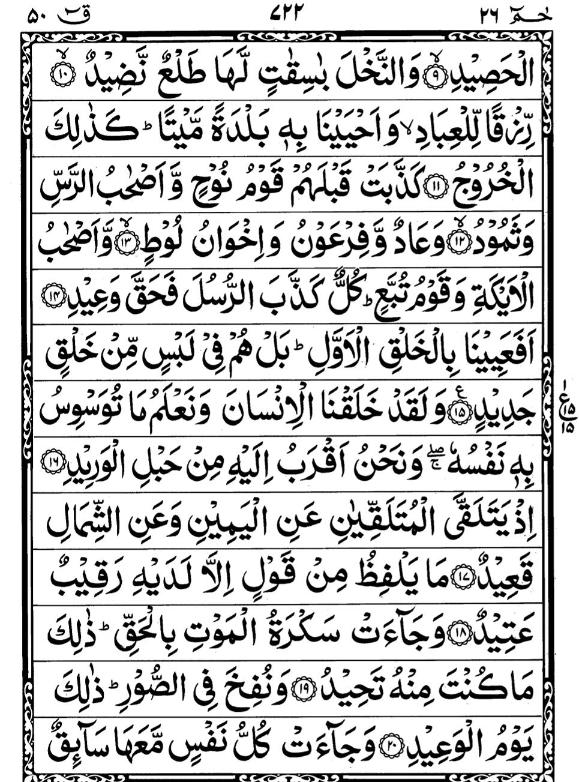 حٰمٓ ٢٦ ٧٢٢ قٓ ٥٠
الْحَصِيْدِ ۙ‏﴿۹﴾ وَالنَّخْلَ بٰسِقٰتٍ لَّهَا طَلْعٌ نَّضِيْدٌ ۙ‏﴿۱۰﴾
رِّزْقًا لِّلْعِبَادِ ۙ وَاَحْيَيْنَا بِهٖ بَلْدَةً مَّيْتًا ؕ كَذٰلِكَ
الْخُرُوْجُ ﴿۱۱﴾ كَذَّبَتْ قَبْلَهُمْ قَوْمُ نُوْحٍ وَّاَصْحٰبُ الرَّسِّ
وَثَمُوْدُ ۙ﴿۱۲﴾ وَعَادٌ وَّفِرْعَوْنُ وَاِخْوَانُ لُوْطٍ ۙ﴿۱۳﴾ وَّاَصْحٰبُ
الْاَيْكَةِ وَقَوْمُ تُبَّعٍ ؕ كُلٌّ كَذَّبَ الرُّسُلَ فَحَقَّ وَعِيْدِ ﴿۱۴﴾
اَفَعَيِيْنَا بِالْخَلْقِ الْاَوَّلِ ؕ بَلْ هُمْ فِيْ لَبْسٍ مِّنْ خَلْقٍ
جَدِيْدٍ ﴿۱۵﴾ۧ وَلَقَدْ خَلَقْنَا الْاِنْسَانَ وَنَعْلَمُ مَا تُوَسْوِسُ
ع ۱۵ ۱۵
بِهٖ نَفْسُهٗ ۖۚ وَنَحْنُ اَقْرَبُ اِلَيْهِ مِنْ حَبْلِ الْوَرِيْدِ ﴿۱۶﴾
اِذْ يَتَلَقَّى الْمُتَلَقِّيٰنِ عَنِ الْيَمِيْنِ وَعَنِ الشِّمَالِ
قَعِيْدٌ ﴿۱۷﴾ مَا يَلْفِظُ مِنْ قَوْلٍ اِلَّا لَدَيْهِ رَقِيْبٌ
عَتِيْدٌ ﴿۱۸﴾ وَجَآءَتْ سَكْرَةُ الْمَوْتِ بِالْحَقِّ ؕ ذٰلِكَ
مَا كُنْتَ مِنْهُ تَحِيْدُ ﴿۱۹﴾ وَنُفِخَ فِي الصُّوْرِ ؕ ذٰلِكَ
يَوْمُ الْوَعِيْدِ ﴿۲۰﴾ وَجَآءَتْ كُلُّ نَفْسٍ مَّعَهَا سَآئِقٌ